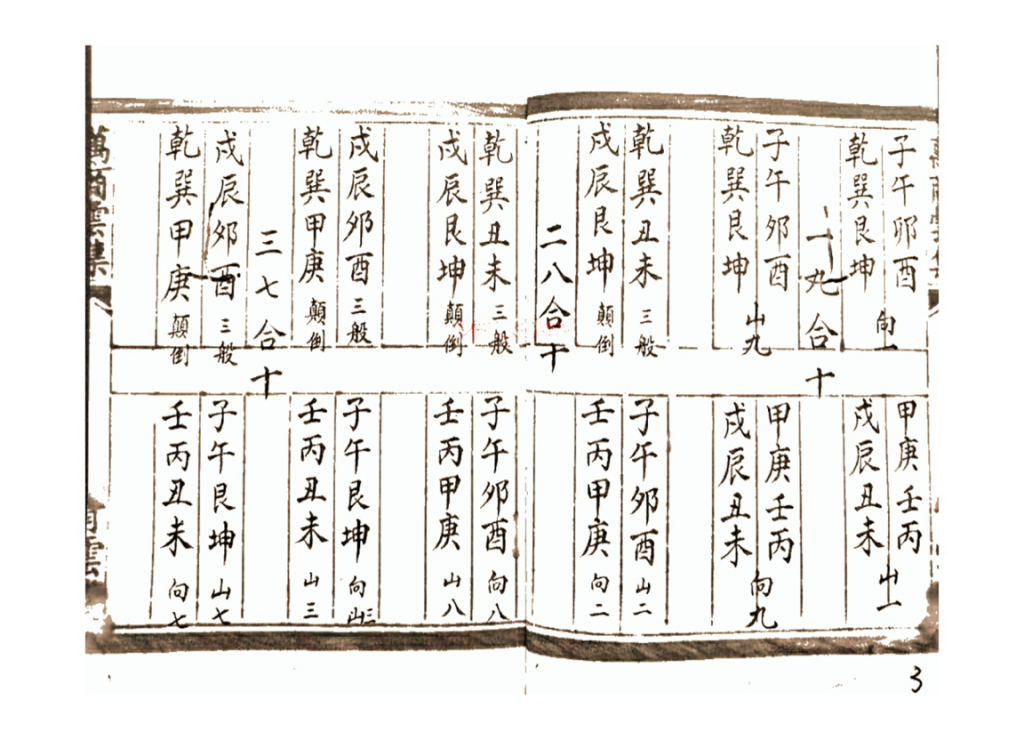 子午卯酉
乾巽艮坤
向一
甲庚壬丙
戌辰丑未
山一
一九合十
子午邜酉
乾巽艮坤
山九
甲庚壬丙
戌辰丑未
向九
乾巽丑未 三般
子午邜酉 山二
戌辰艮坤 顛倒
壬丙甲庚 向二
二八合十
乾巽丑未 三般
子午邜酉 向八
戌辰艮坤 顛倒
壬丙甲庚 山八
戌辰邜酉 三般
子午艮坤 向三
乾巽甲庚 顛倒
壬丙丑未 山三
三七合十
戌辰邜酉 三般
子午艮坤 山七
乾巽甲庚 顛倒
壬丙丑未 向七
3